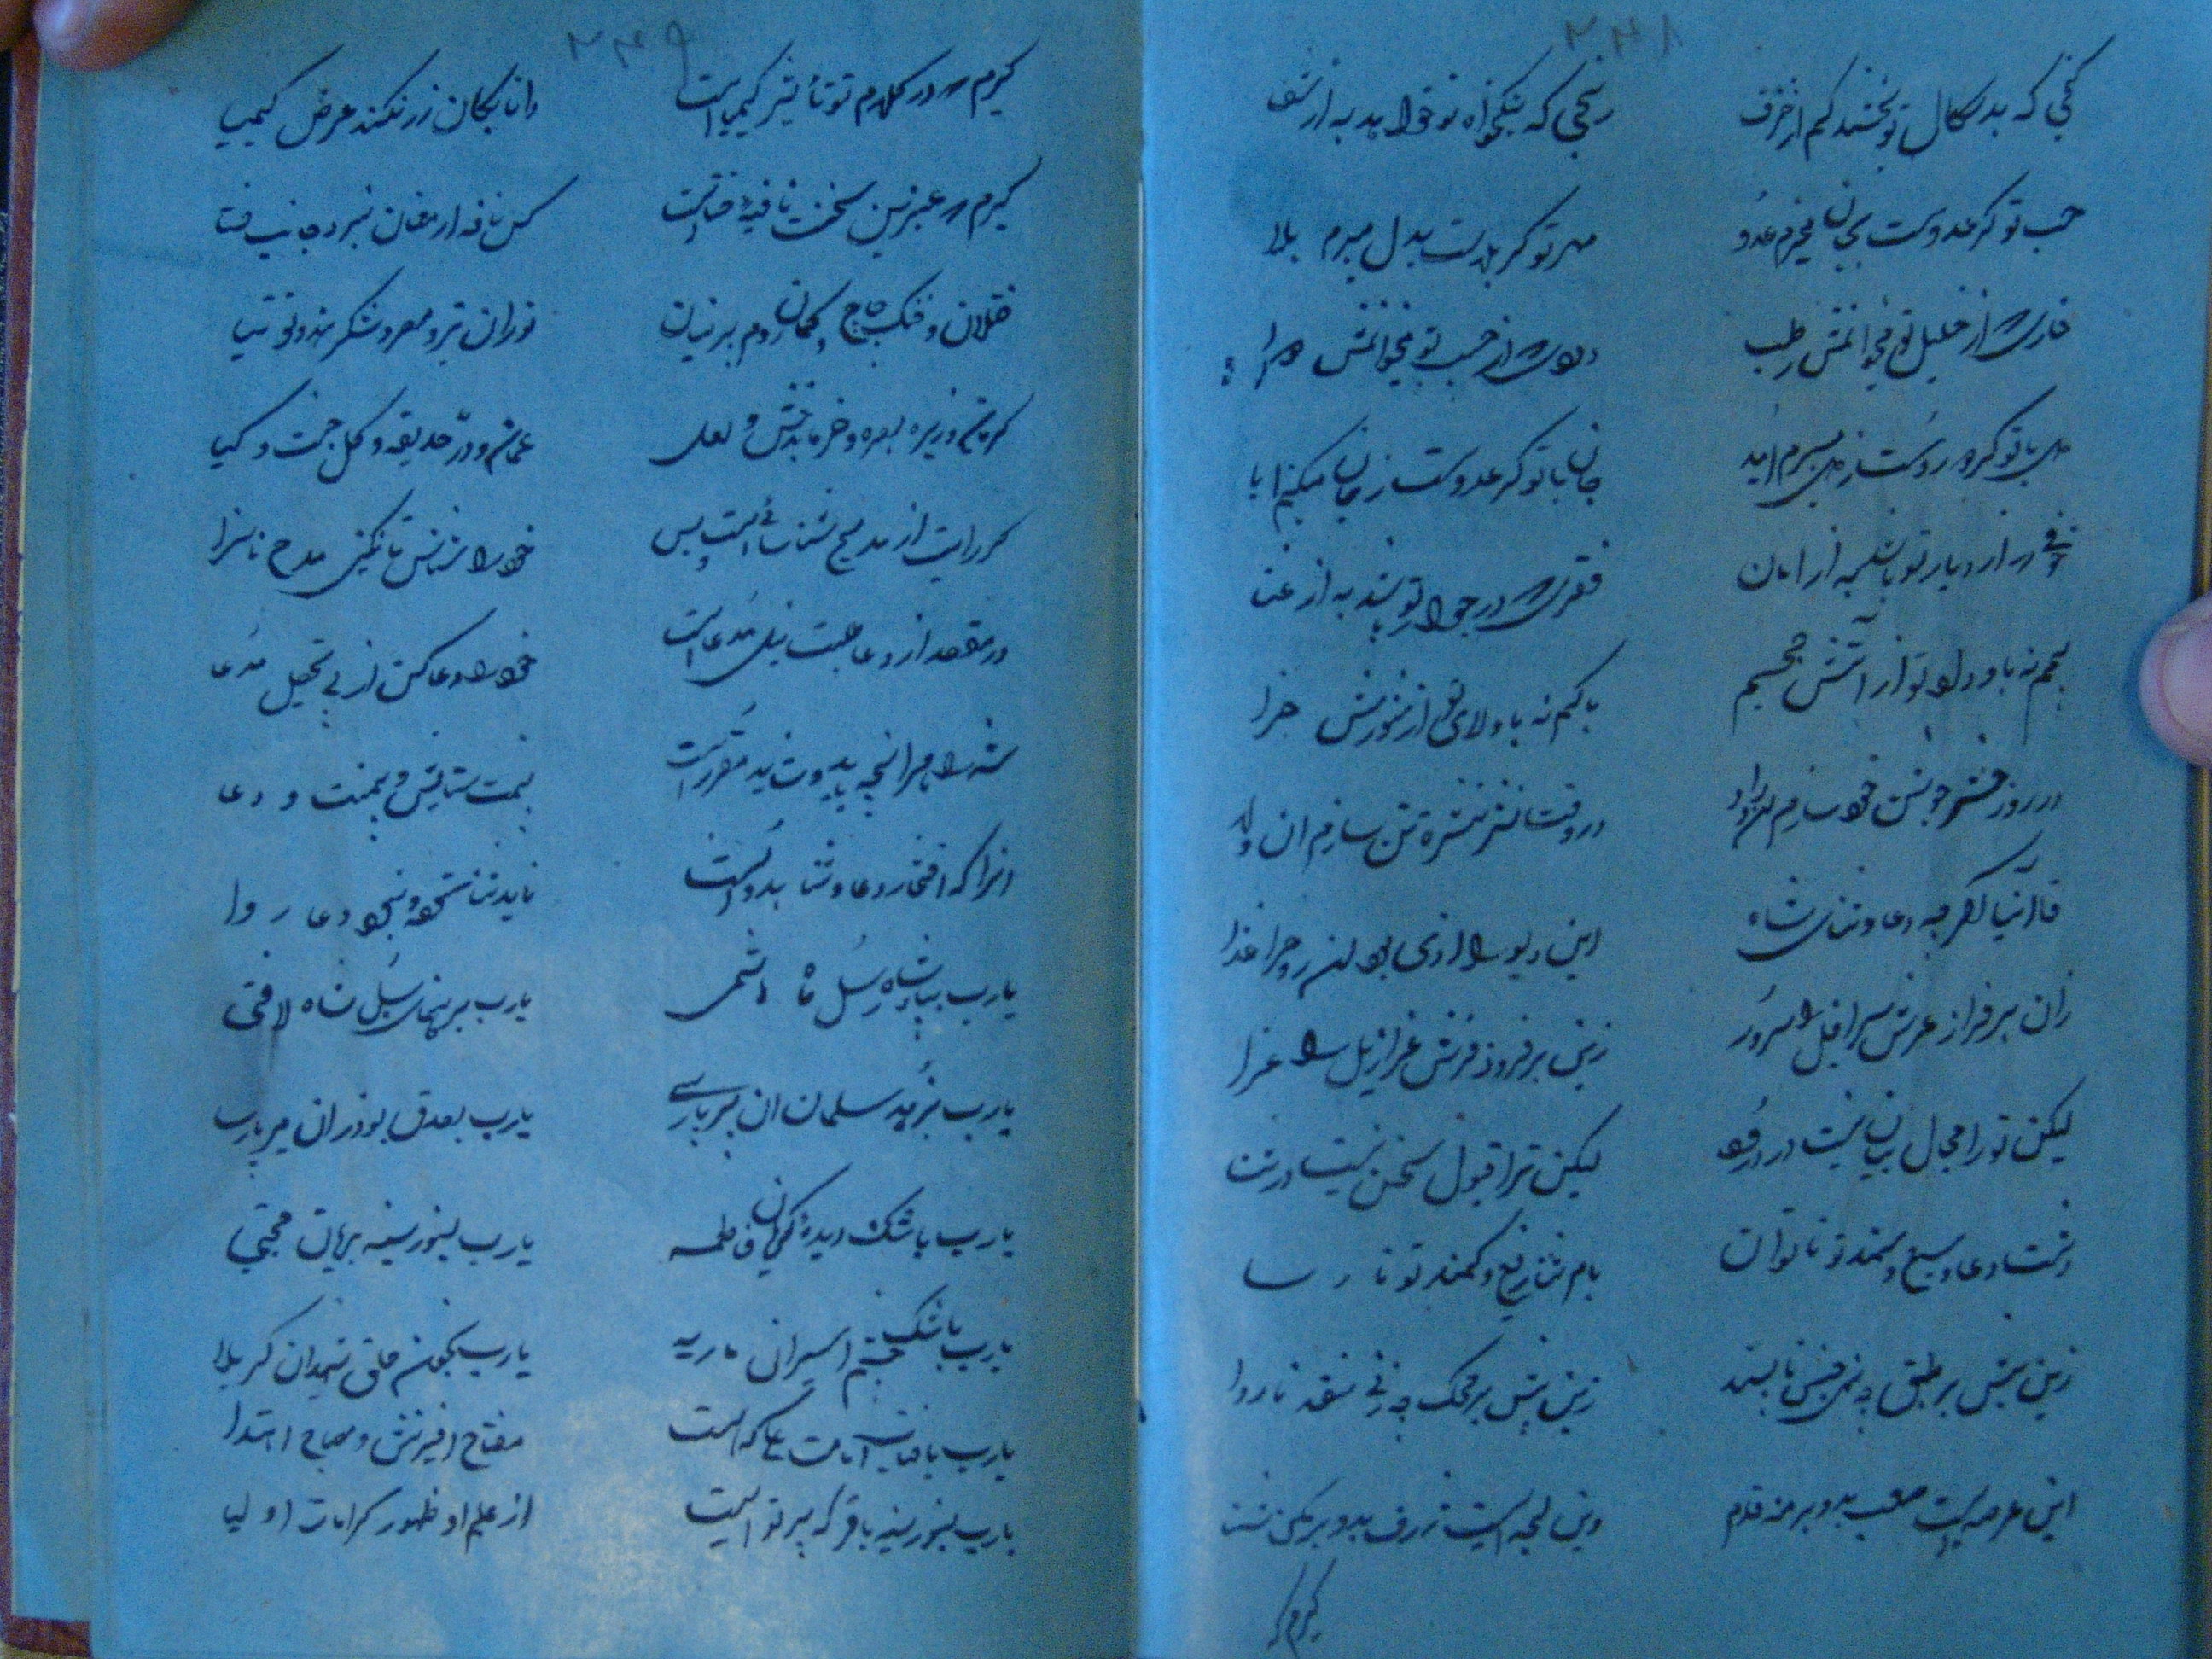 گنجی که بدسگال تو بخشد کم از خزف رنجی که نیکخواه تو خواهد به از شفا
حب تو گر عدوست بجان میخرم عدو مهر تو گر بلاست بدل میبرم بلا
خاری که از خلیل تو میخوانمش رطب دردی که از حبیب تو میخوانمش دوا
دل با تو گر دوروست ز دل میبرم امید جان با تو گر عدوست ز جان میکنم ابا
خوفی که از دیار تو باشد به از امان فقری که در جوار تو باشد به از غنا
بیمم نه با ولای تو از آتش جحیم باکم نه با ولای تو از شورش جزا
در روز حشر جوشن خود سازم این ولا در وقت نشر نشره تن سازم آن ولا
قاآنیا اگرچه دعا و ثنای شاه این دیو را دوای بود آن روح را غذا
زان بر فراز عرش سرافیل را سرور زین بر فرود فرش عزازیل را عزا
لیکن تو را مجال بیان نیست در درود لیکن ترا قبول سخن نیست در ثنا
دشت دعا وسیع و سمند تو ناتوان بام ثنا رفیع و کمند تو نارسا
زین بیش بر طبق چه نهی جنس ناپسند زین پیش بر محک چه زنی نقد ناروا
این عرصه ایست صعب بدو بر منه قدم وین لجه ایست ژرف بدو بر مکن شنا
گیرم که
گیرم که در کلام تو تأثیر کیمیاست دانا بکان زر نکند عرض کیمیا
گیرم که عنبرین سخنت نافهٔ ختاست کس نافه ارمغان نبرد جانب ختا
ختلان و خنگ چاچ و کمان روم و پرنیان توران و تیر و مصر و شکر هند و توتیا
کرمان و زیره بصره و خرما بدخش و لعل عمان و در حدیقه و گل جنت و گیا
گر رایت از مدیح شناسائی است بس خود را شناس تا نکنی مدح ناسزا
ور مقصد از دعا طلبت نیل مدعاست خود را دعا کن از پی تحصیل مدعا
شه را هر آنچه باید و شاید مقرر است بی مدحت ستایش و بی منت دعا
آنرا که افتخار دعا و ثنا بدوست ناید ثنا ستوده و نبود دعا روا
یارب بپادشاه رسل ماه هاشمی یارب برهنمای سبل شاه لافتی
یارب بزهد سلمان آن پیر پارسی یارب بصدق بوذر آن میر پارسا
یارب باشک دیدهٔ گریان فاطمه یارب بسوز سینه بریان مجتبی
یارب باشک چشم اسیران ماریه یارب بخون حلق شهیدان کربلا
یارب بآفتاب امامت علی که است مفتاح آفرینش و مصباح اهتدا
یارب بنور سینه باقر که پرتو است از علم او ظهور کرامات اولیا